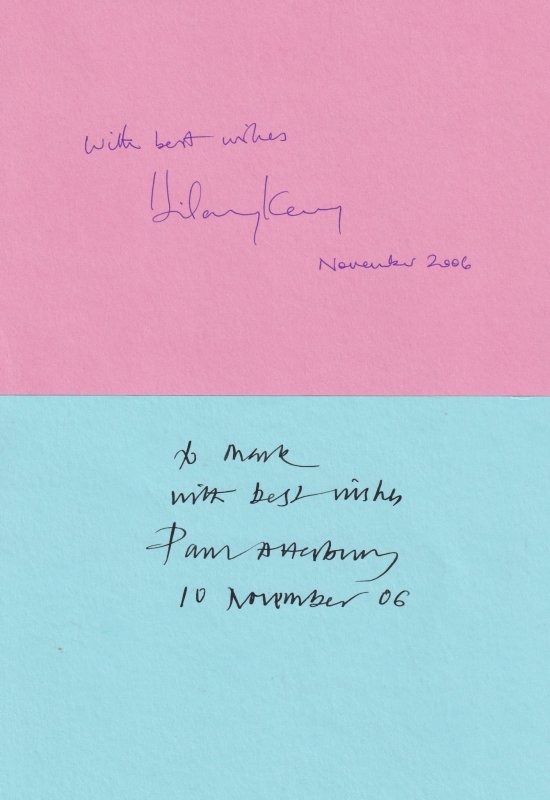 With best wishes
Hilary Kay
November 2006
to Mark
with best wishes
Paul Atterbury
10 November 06